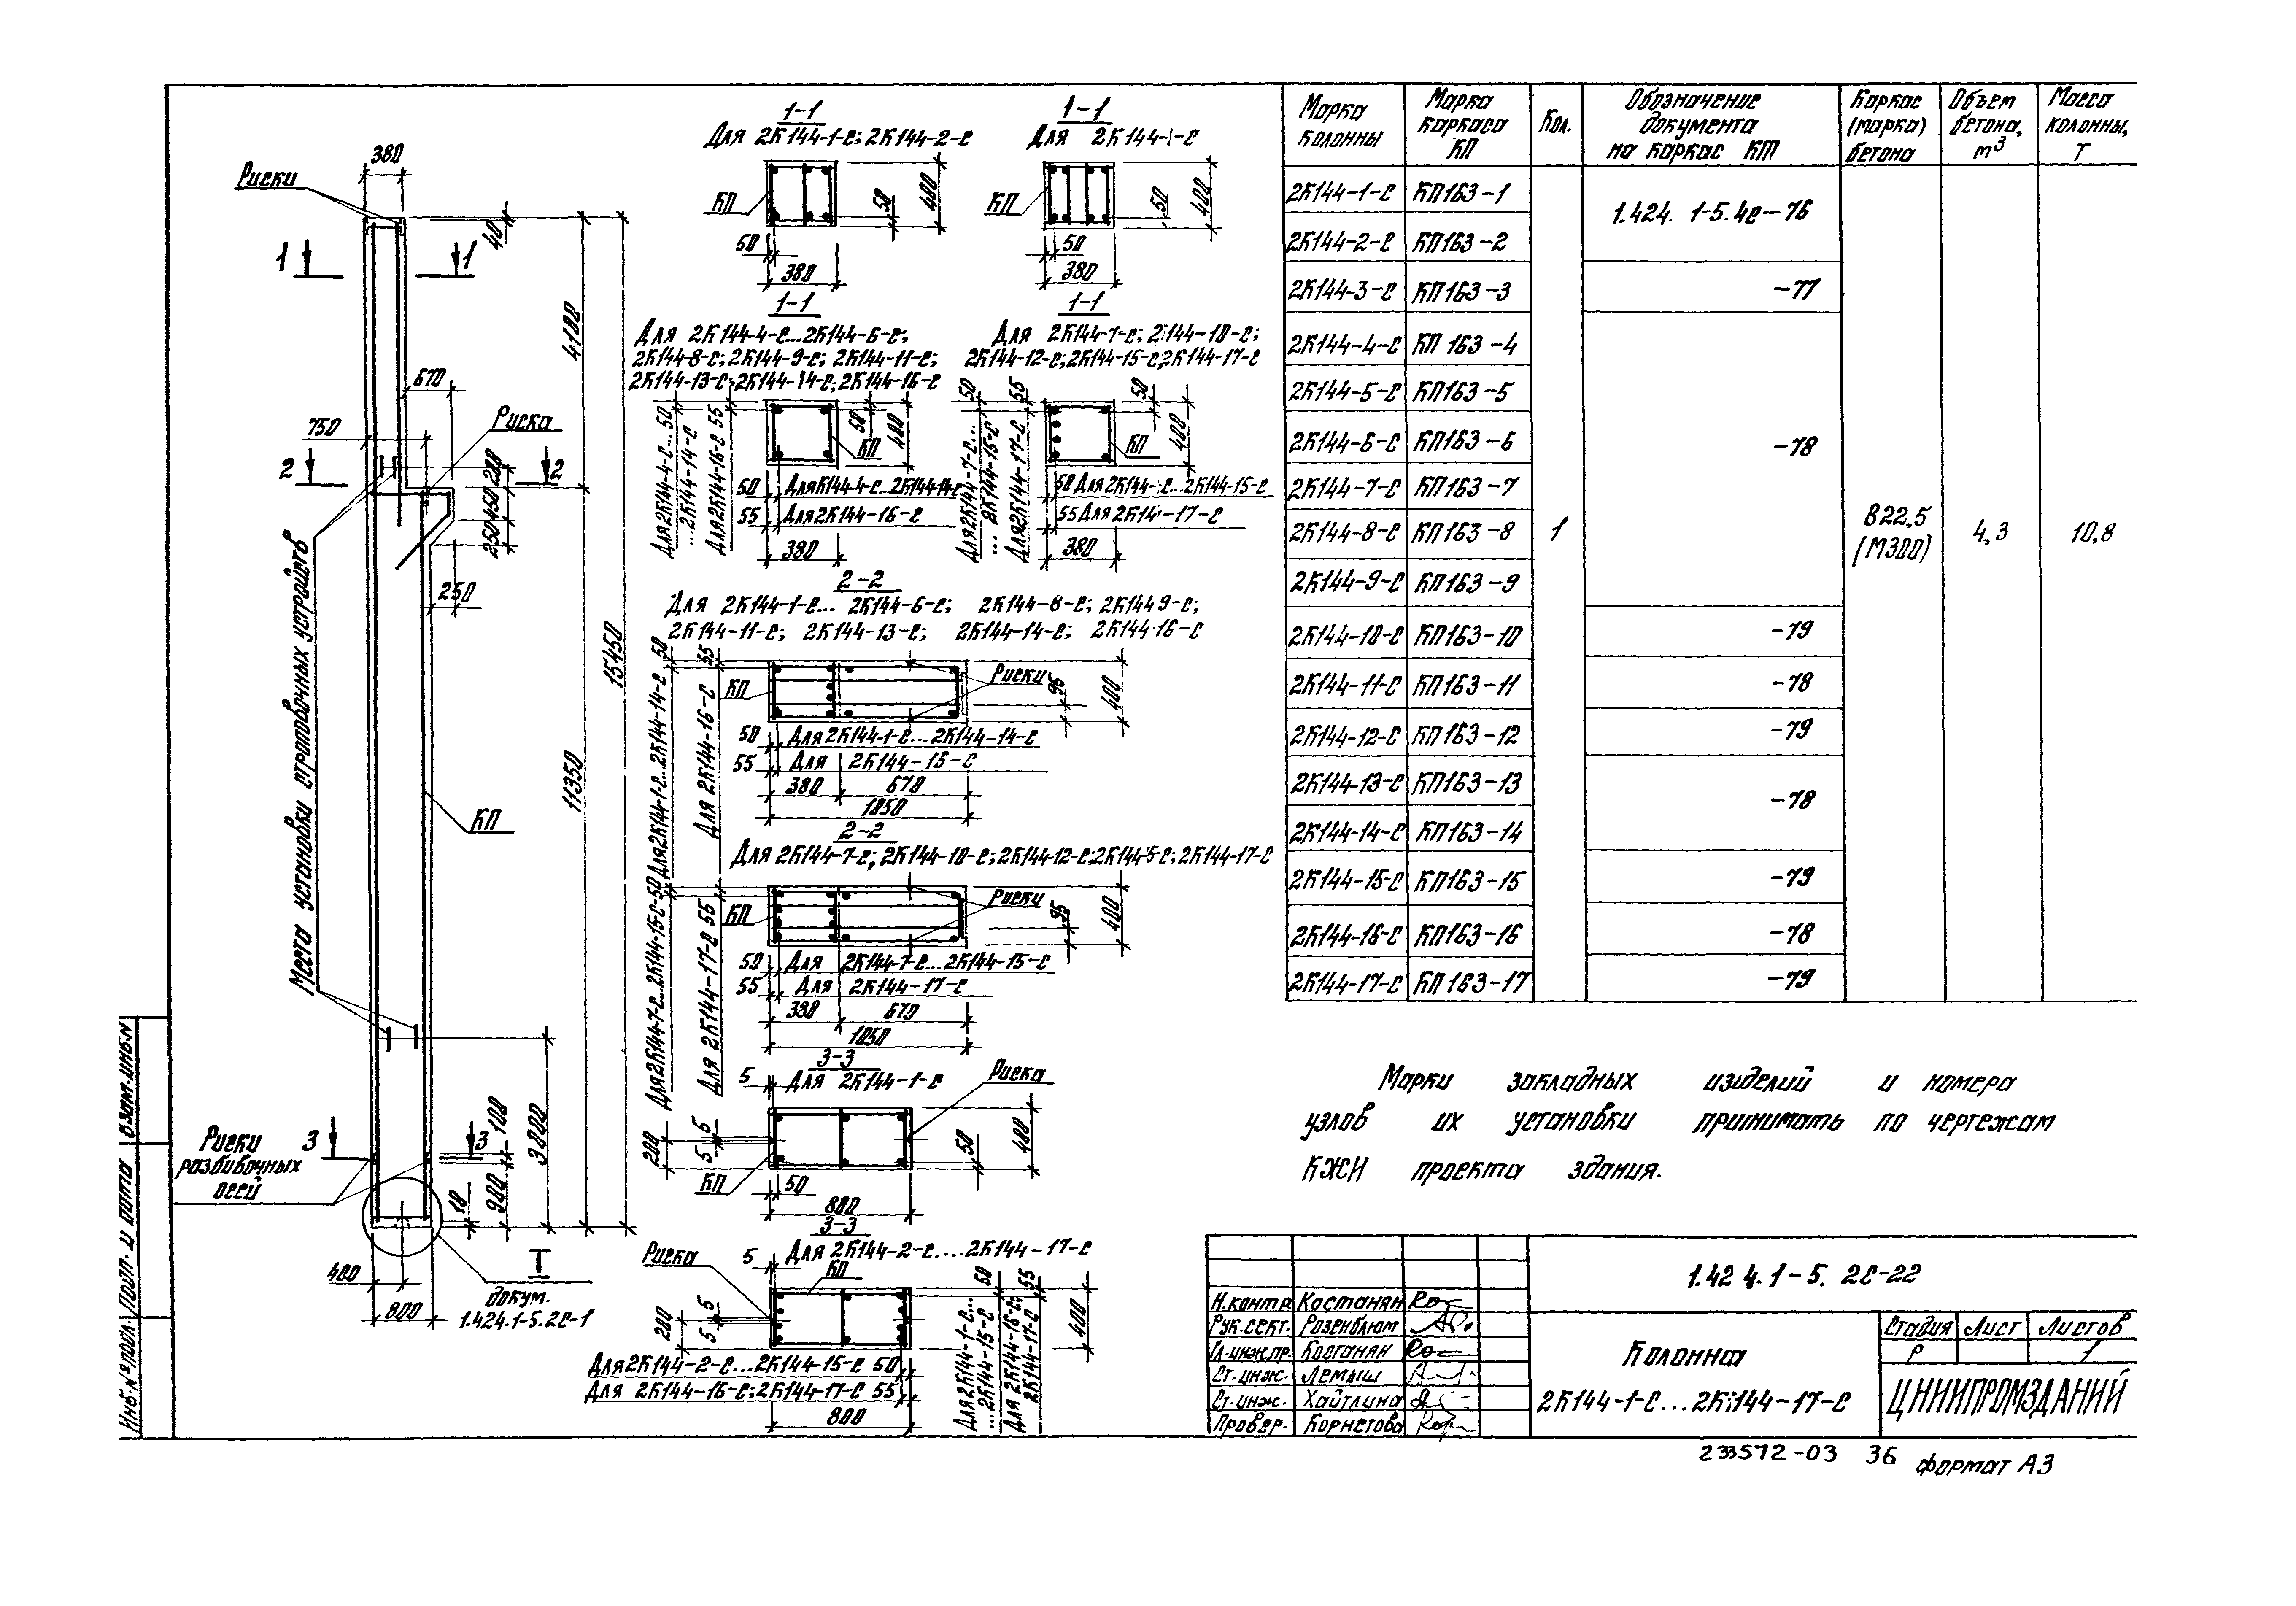 380
Риски
40
1
1
4100
670
750
Риска
2
2
200
450
250
250
Места установки строповочных устройств
15450
11350
КП
3000
100
900
10
Риски
разбивочных
осей
3
3
400
800
I
докум.
1.424.1-5.2С-1
1-1
Для 2К144-1-С; 2К144-2-С
КП
50
400
50
380
1-1
КП
50
400
50
380
1-1
Для 2К144-4-С...2К144-6-С;
2К144-8-С; 2К144-9-С; 2К144-11-С;
2К144-13-С; 2К144-14-С; 2К144-16-С
Для 2К144-4-С... 50
...2К144-14-С
Для 2К144-16-С 55
50
400
КП
50
55 Для 2К144-16-С
380
1-1
Для 2К144-7-С; 2К144-10-С;
2К144-12-С; 2К144-15-С; 2К144-17-С
50
55
Для 2К144-7-С...
... 2К144-15-С
Для 2К144-17-С
50
400
КП
55 Для 2К14-17-С
380
2-2
Для 2К144-1-С... 2К144-6-С; 2К144-8-С; 2К144 9-С;
2К144-11-С; 2К144-13-С; 2К144-14-С; 2К144 16-С
Для 2К144-1-С...2К144-14-С 50
Для 2К144-16-С 55
КП
Риски
95
400
50 Для 2К144-1-С...2К144-14-С
55 Для 2К144-16-С
380 670
1050
2-2
Для 2К144-7-С; 2К144-10-С; 2К144-12-С; 2К144 5-С; 2К144-17-С
Для 2К144-7-С...2К144-15-С-50
Для 2К144-17-С 55
КП
Риски
95
400
50 Для 2К144-7-С...2К144-15-С
55 Для 2К144-17-С
380 670
1050
3-3
5 Для 2К144-1-С
Риска
200
5 5
КП
50
50
400
800
3-3
Для 2К144-2-С....2К144-17-С
Риска
5
КП
200
5 5
50
55
400
Для 2К144-1-С...
...2К144-15-С
Для 2К144-16-С;
2К144-17-С
Для 2К144-2-С...2К144-15-С 50
Для 2К144-16-С; 2К144-17-С 55
800
Марка колонны | Марка каркаса КП | Кол. | Обозначение документа на каркас КП | Каркас (марка) бетона | Объем бетона, м³ | Масса колонны, Т
2К144-1-С КП163-1
1.424. 1-5.4С-76
2К144-2-С КП163-2
2К144-3-С КП163-3 -77
2К144-4-С КП 163-4
2К144-5-С КП163-5
2К144-6-С КП163-6 -78
2К144-7-С КП163-7
2К144-8-С КП163-8 1 В22,5 (М300) 4,3 10,8
2К144-9-С КП163-9
2К144-10-С КП163-10 -79
2К144-11-С КП163-11 -78
2К144-12-С КП163-12 -79
2К144-13-С КП163-13
-78
2К144-14-С КП163-14
2К144-15-С КП163-15 -79
2К144-16-С КП163-16 -78
2К144-17-С КП 163-17 -79
Марки закладных изделий и номера
узлов их установки принимать по чертежам
КЖИ проекта здания.
1.42 4.1-5. 2С-22
Н.контр. Костанян
Рук.сект. Розенблюм
Гл.инж.пр. Костанян
Ст.инж. Лемыш
Ст.инж. Хайтлина
Провер. Корнетова
Колонна
2К144-1-С...2К144-17-С
Стадия Лист Листов
Р 1
ЦНИИПРОМЗДАНИЙ
Взам.инв.N
Подп. и дата
Инв.№ подл.
233572-03 36 формат А3